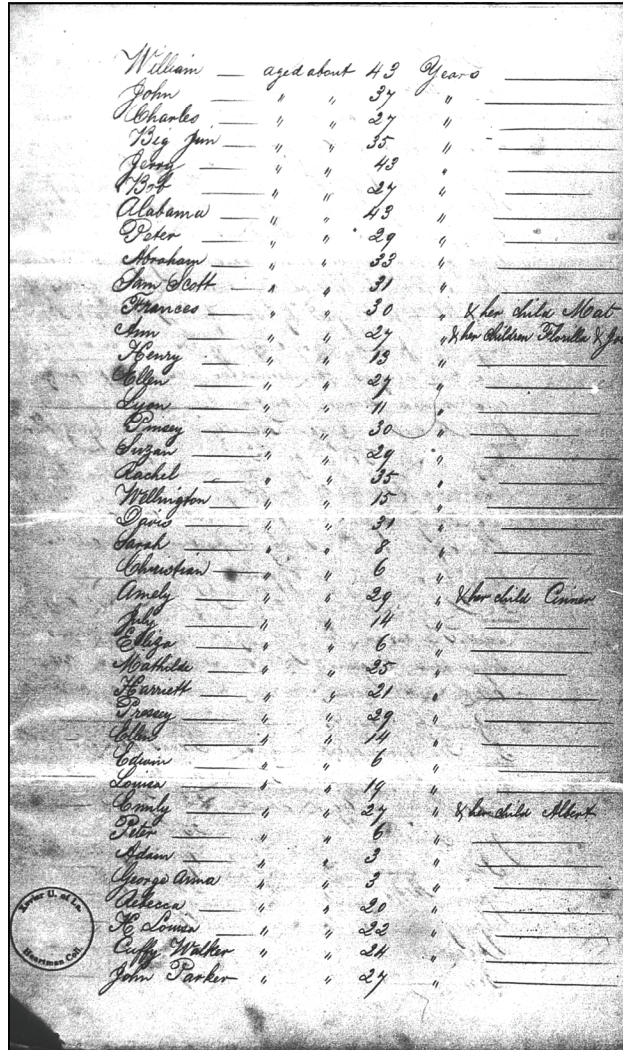 William — aged about 43 Years
John — " " 37 "
Charles — " " 27 "
Big Jim — " " 35 "
Jerry — " " 43 "
Bob — " " 27 "
Alabama — " " 43 "
Peter — " " 29 "
Abraham — " " 33 "
Sam Scott — " " 31 "
Frances — " " 30 " & her child Mat
Ann — " " 27 " & her children Florilla &
Henry — " " 13 "
Ellen — " " 27 "
Lyon — " " 11 "
Pinsey — " " 30 "
Suzan — " " 29 "
Rachel — " " 35 "
Wellington — " " 15 "
Davis — " " 31 "
Sarah — " " 8 "
Christian — " " 6 "
Amely — " " 29 " & her child Cinner
July — " " 14 "
Eliza — " " 6 "
Mathilde — " " 25 "
Harriett — " " 21 "
Pressey — " " 29 "
Ellen — " " 14 "
Edwin — " " 6 "
Louisa — " " 19 "
Emily — " " 27 " & her child Albert
Peter — " " 6 "
Adam — " " 3 "
George Arma — " " 3 "
Rebecca — " " 20 "
K Louisa — " " 22 "
Cuffy Walker " " 24 "
John Parker — " " 27 "
Xavier U. of La.
Heartman Coll.